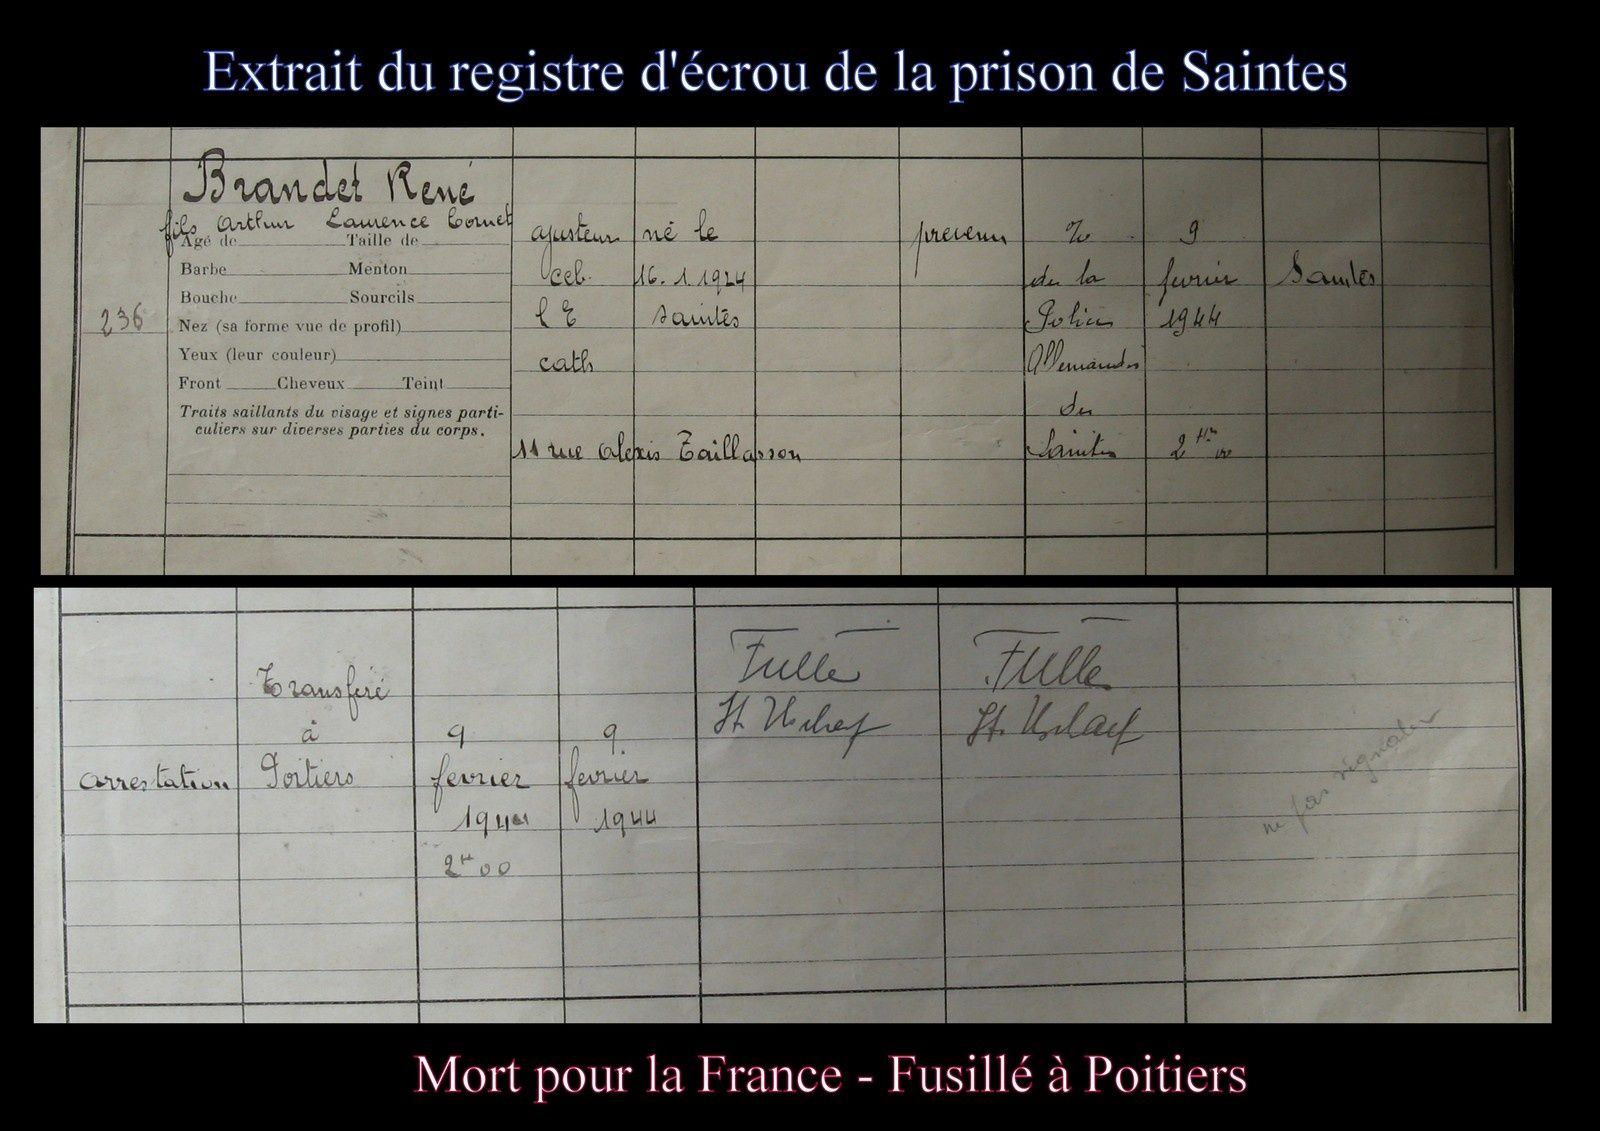 Extrait du registre d'écrou de la prison de Saintes
Brandet René
fils Arthur Laurence Cornet
Agé de Taille de
Barbe Menton
Bouche Sourcils
236
Nez (sa forme vue de profil)
Yeux (leur couleur)
Front Cheveux Teint
Traits saillants du visage et signes parti-
culiers sur diverses parties du corps.
ajusteur
cel.
l E
cath
né le
16.1.1924
Saintes
11 rue Alexis Taillasson
prevenu
de la
Police
Allemande
de
Saintes
9
fevrier
1944
2 00
Saintes
arrestation
Transferé
à
Poitiers
9
fevrier
1944
2 00
9
fevrier
1944
Fulle
St.
Fulle
St.
ne pas signaler
Mort pour la France - Fusillé à Poitiers